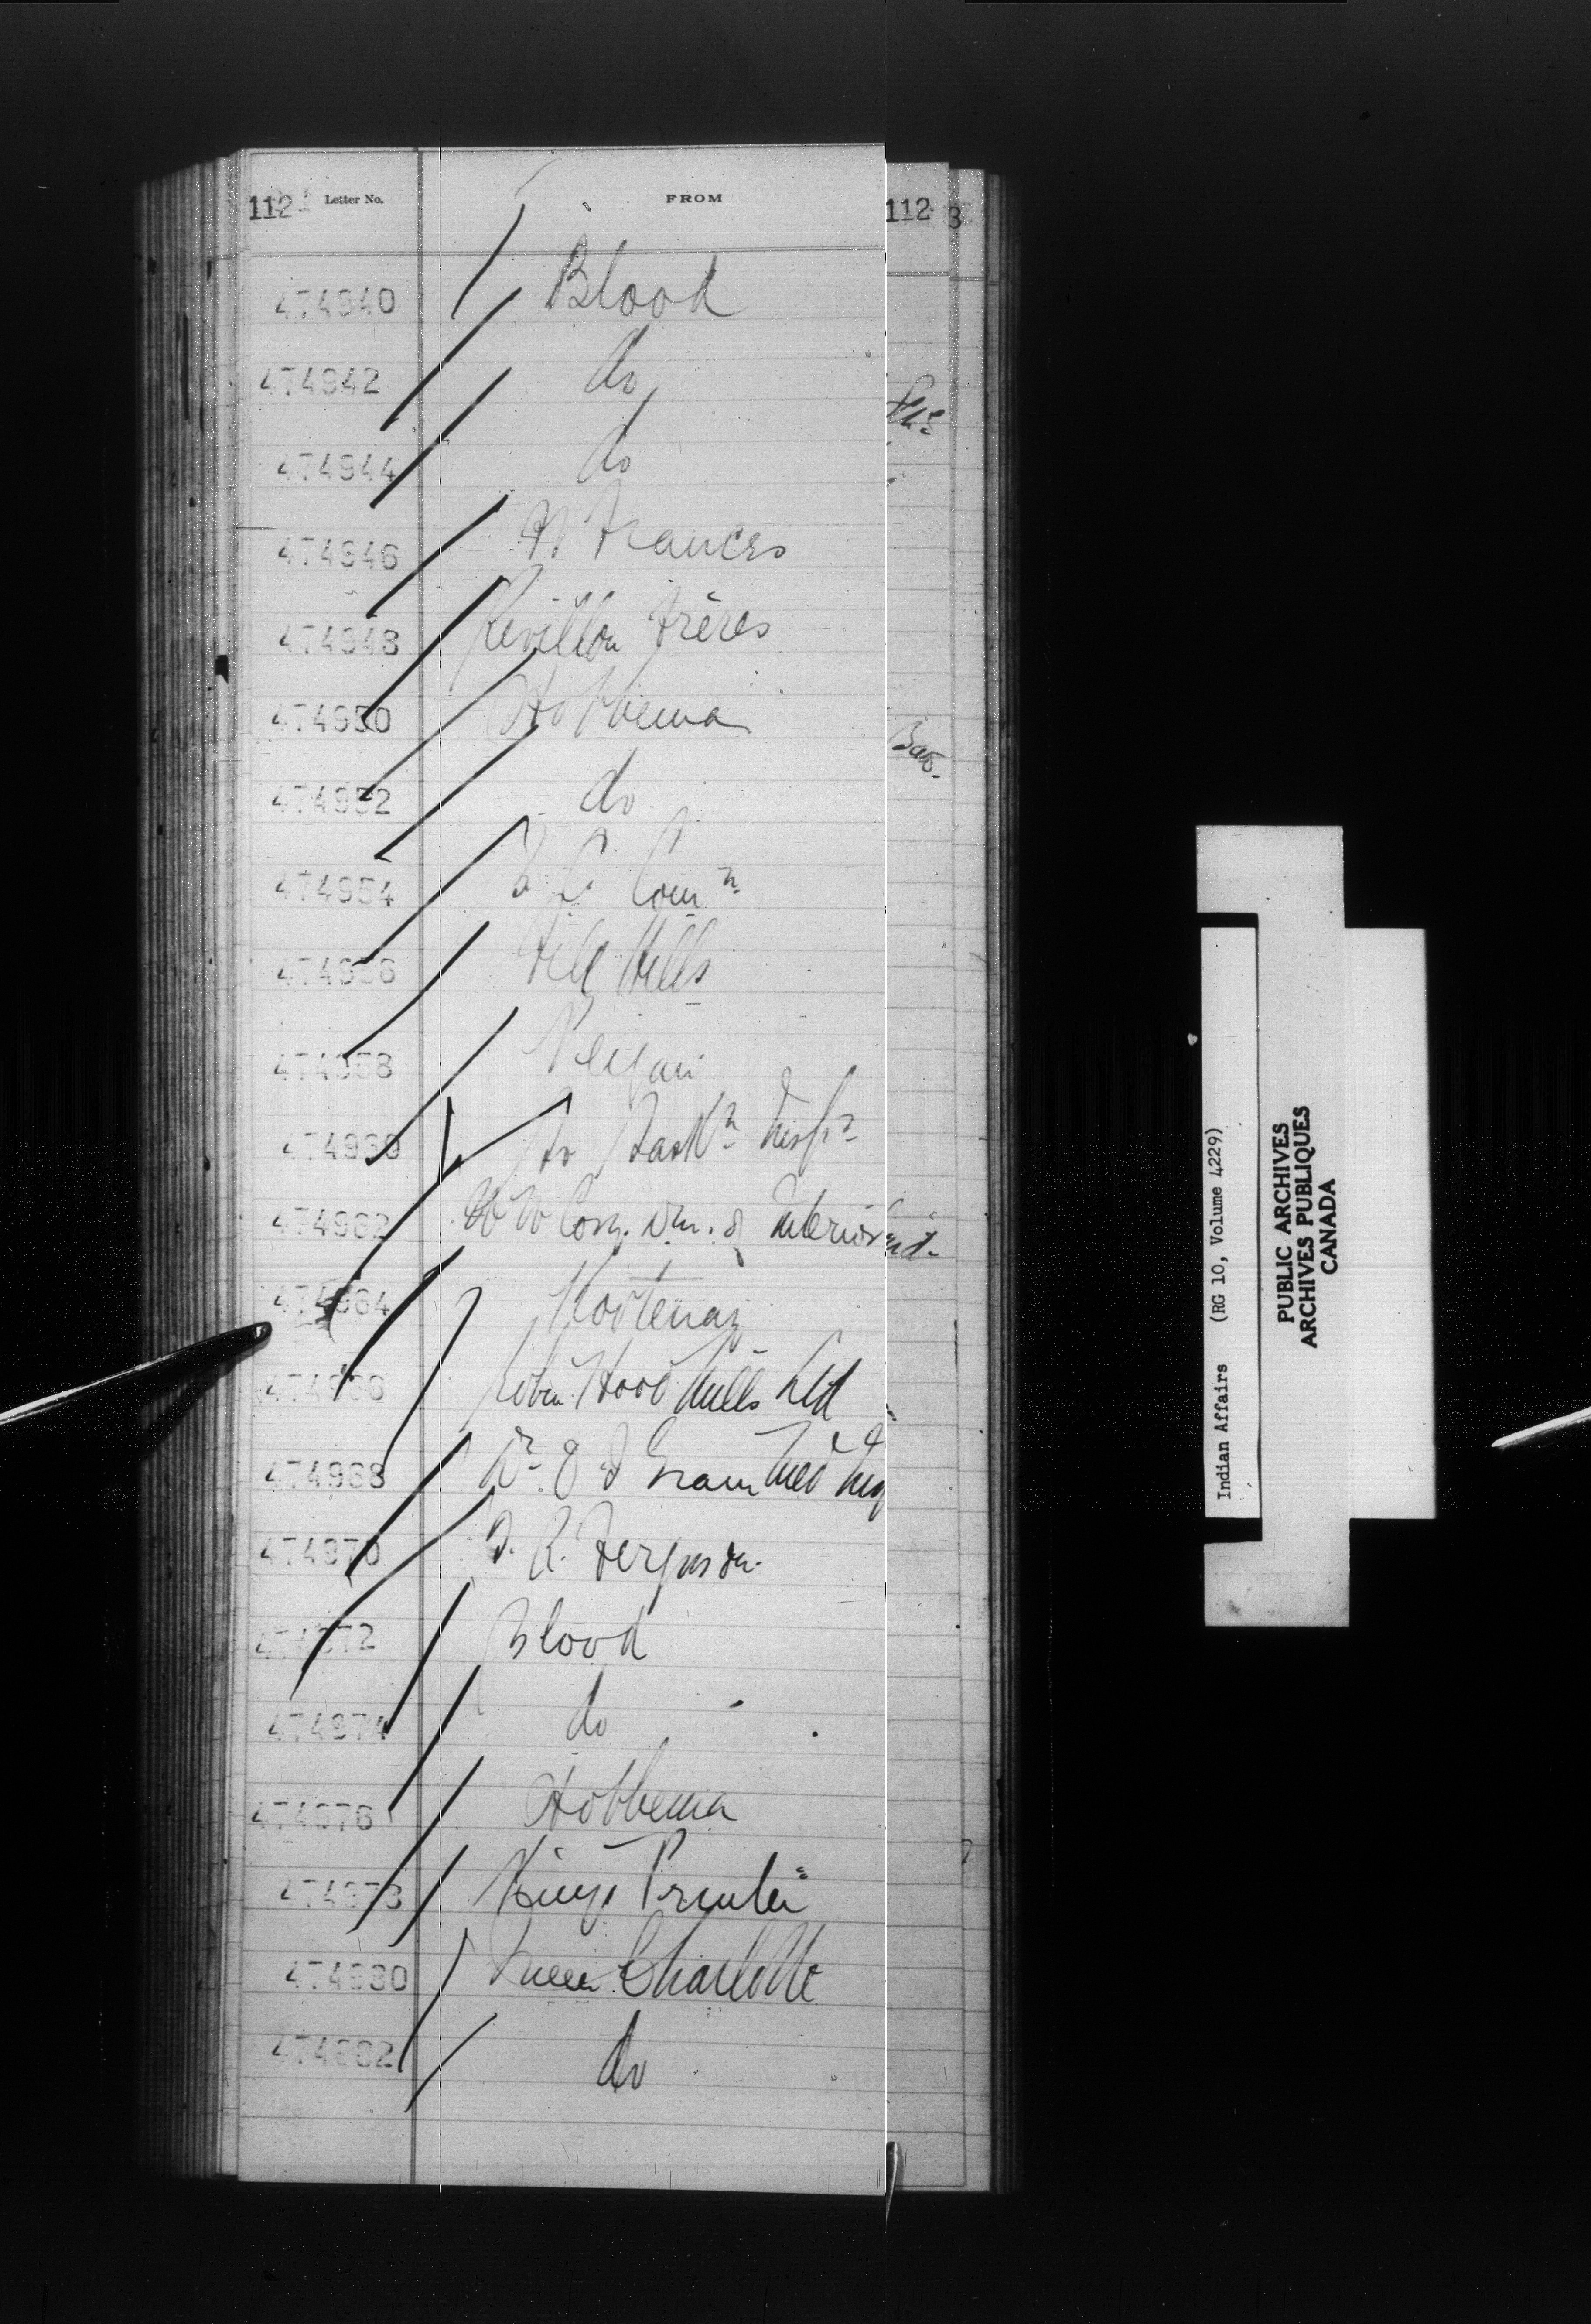 112 Letter No. FROM
474940 Blood
474942 do
474944 do
474946 Ft Frances
474948 Revillon Frères
474950 Hobbema
474952 do
474954 B C Comn
474956 File Hills
474958 Peigan
474960 So Saskn Inspn
474962 Com. Dm. of Interior
474964 Kootenay
474966 Robin Hood Mills Ltd
474968 Dr O I Grain Med Insp
474970 T. R. Ferguson
474972 Blood
474974 do
474976 Hobbema
474978 Kings Printer
474980 Queen Charlotte
474982 do
112
Indian Affairs (RG 10, Volume 4229)
PUBLIC ARCHIVES
ARCHIVES PUBLIQUES
CANADA